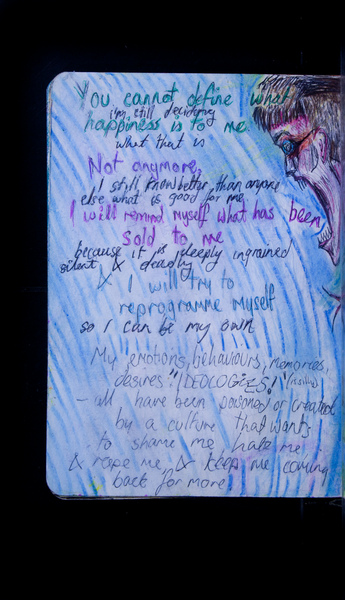 You cannot define what
i'm still deciding
happiness is to me
what that is
Not anymore,
I still know better, than anyone
else what is good for me.
I will remind myself what has been
sold to me
because it is deeply ingrained
silent & deadly
& I will try to
reprogramme myself
so I can be my own
My emotions, behaviours, memories,
desires "IDEOLOGIES!"
- all have been poisoned or created
by a culture that wants
to shame me, hate me
& rape me, & keep me coming
back for more